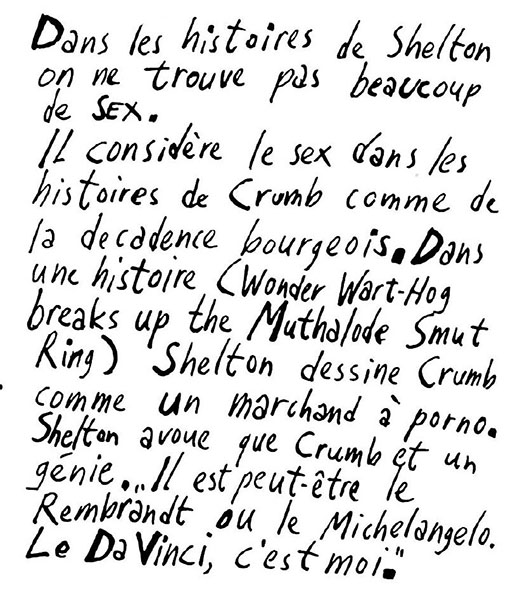 Dans les histoires de Shelton
on ne trouve pas beaucoup
de SEX.
Il considère le sex dans les
histoires de Crumb comme de
la decadence bourgeois. Dans
une histoire (Wonder Wart-Hog
breaks up the Muthalode Smut
Ring) Shelton dessine Crumb
comme un marchand à porno.
Shelton avoue que Crumb et un
génie. „Il est peut-être le
Rembrandt ou le Michelangelo.
Le Da Vinci, c'est moi."